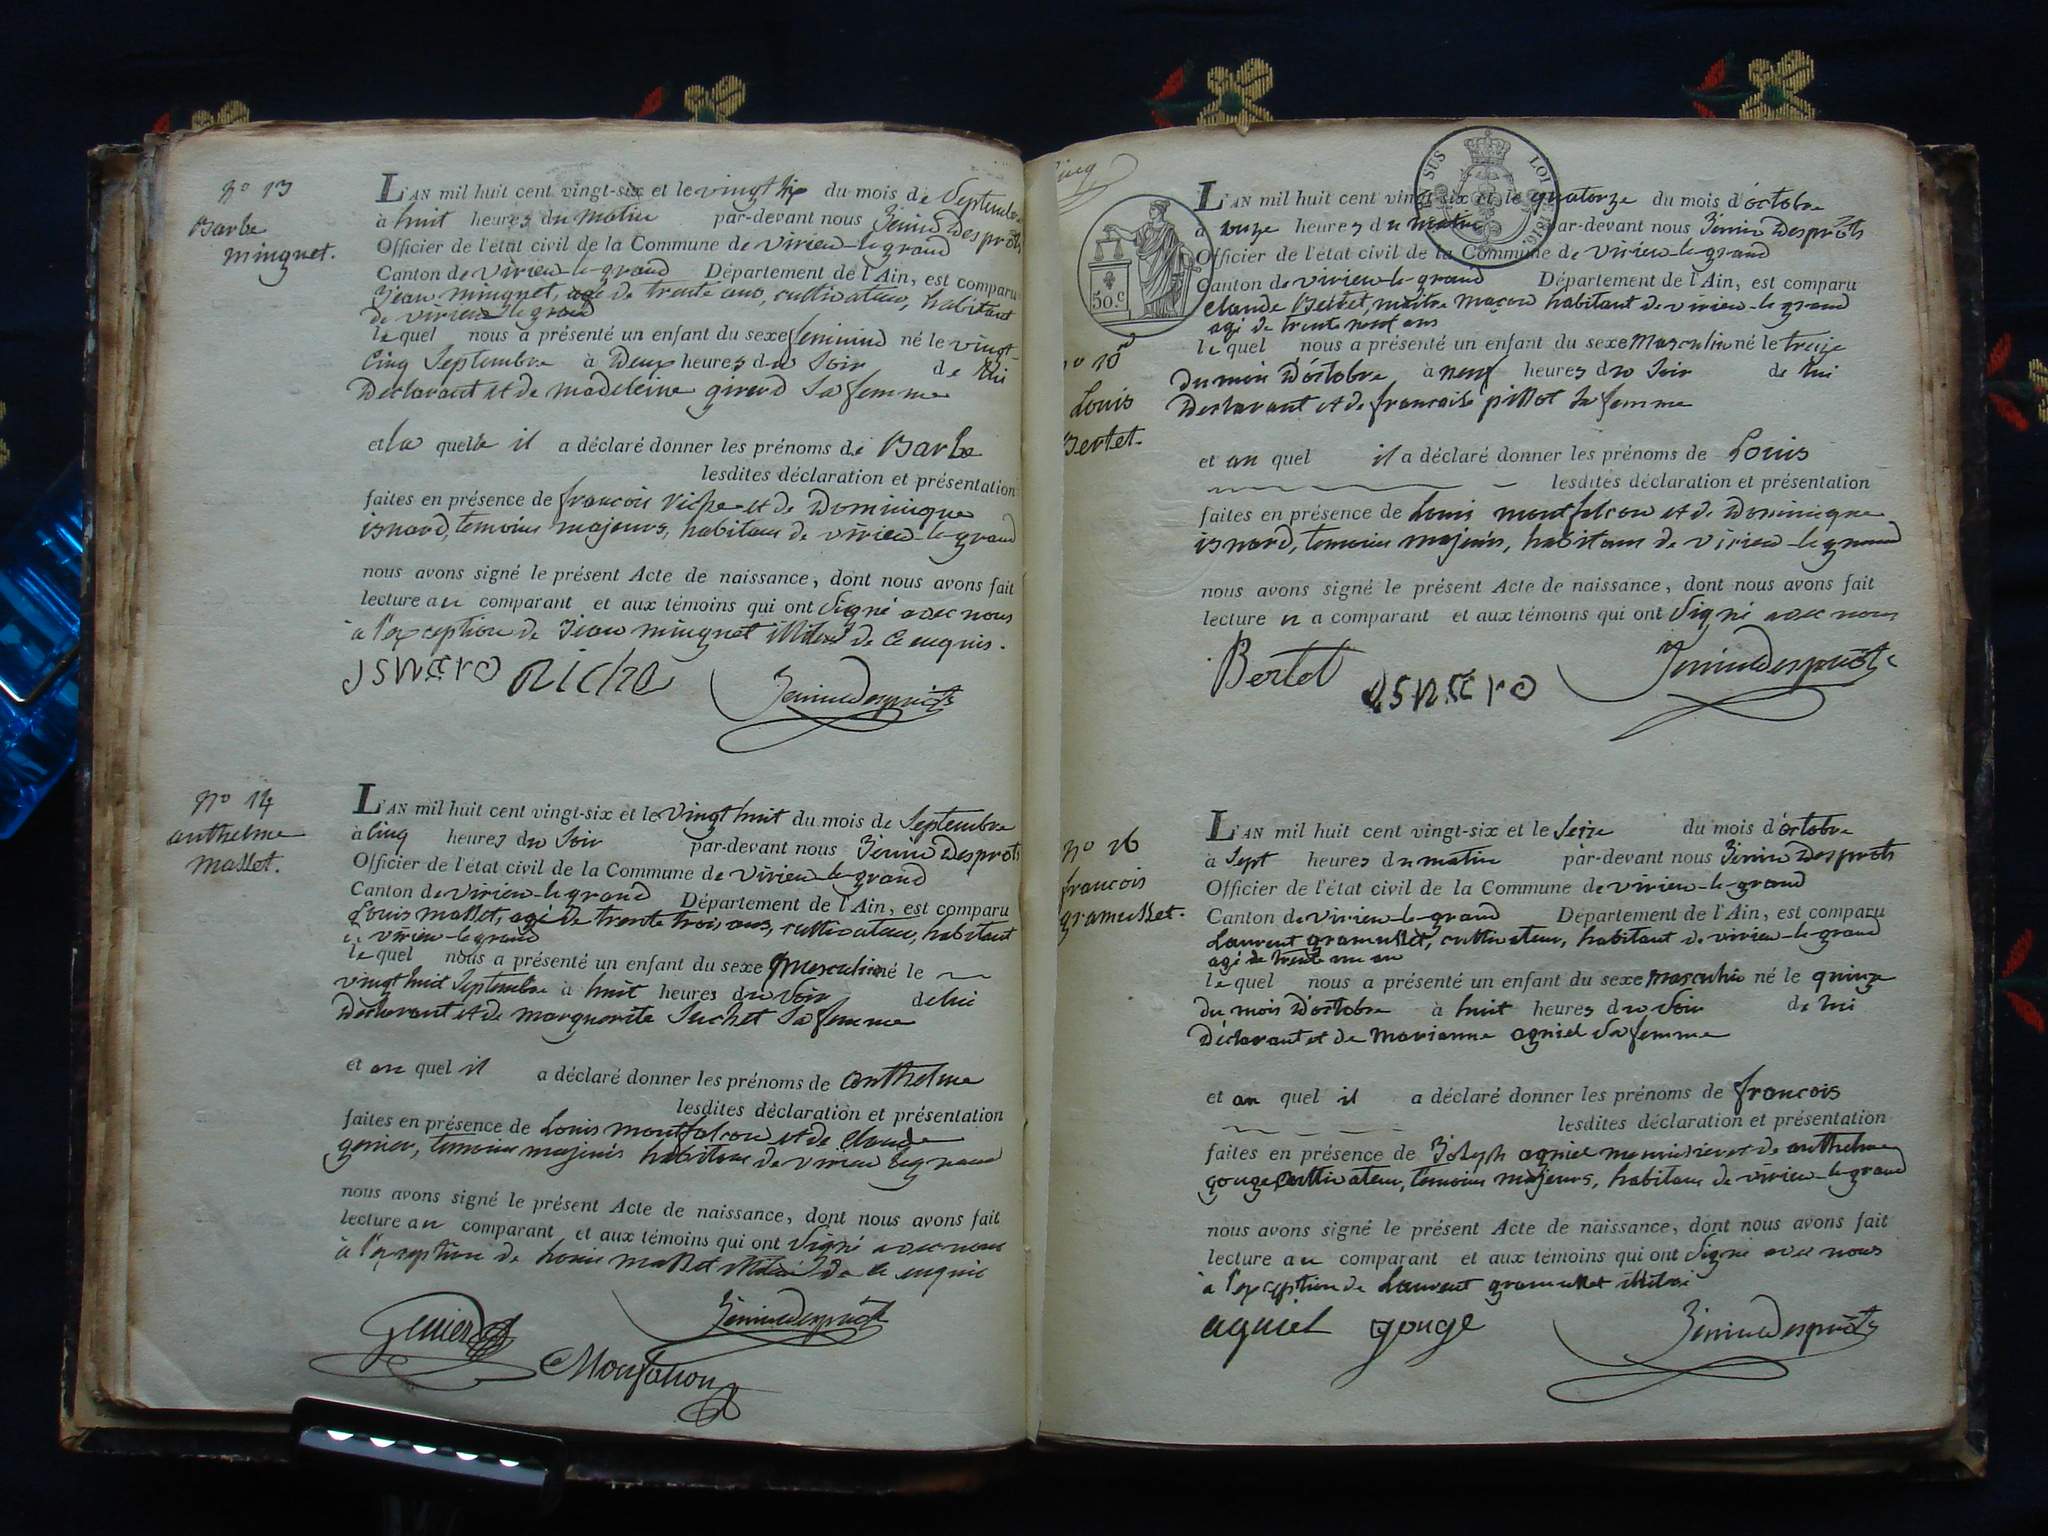 n° 13
Barbe
minguet.
L'AN mil huit cent vingt-six et le vingt six du mois de Septembre
à huit heures du matin par-devant nous Jenin Desprôts
Officier de l'état civil de la Commune de virieu-le-grand
Canton de virieu-le-grand Département de l'Ain, est comparu
Jean minguet, agé de trente ans, cultivateur, habitant
de virieu le grand
lequel nous a présenté un enfant du sexe feminin né le vingt-
Cinq Septembre à Deux heures du Soir de lui
Déclarant et de madeleine girerd Sa femme
et la quelle il a déclaré donner les prénoms de Barbe
lesdites déclaration et présentation
faites en présence de françois riche et de Dominique
isnard, temoins majeurs, habitans de virieu-le-grand
nous avons signé le présent Acte de naissance, dont nous avons fait
lecture au comparant et aux témoins qui ont Signé avec nous
à l'exception de Jean minguet illitéré de ce enquis.
isnard riche Jenin Desprôts
n° 14
anthelme
masset.
L'AN mil huit cent vingt-six et le vingt huit du mois de Septembre
à Cinq heures du Soir par-devant nous Jenin Desprôts
Officier de l'état civil de la Commune de virieu-le-grand
Canton de virieu-le-grand Département de l'Ain, est comparu
Louis masset, agé de trente trois ans, cultivateur, habitant
de virieu-le-grand
lequel nous a présenté un enfant du sexe masculin né le
vingt huit Septembre à huit heures du Soir de lui
Déclarant et de marguerite Suchet Sa femme
et au quel il a déclaré donner les prénoms de anthelme
lesdites déclaration et présentation
faites en présence de Louis montfalcon et de Claude
genier, temoins majeurs habitans de virieu le grand
nous avons signé le présent Acte de naissance, dont nous avons fait
lecture au comparant et aux témoins qui ont Signé avec nous
à l'exception de Louis masset illitéré de ce enquis
Genier Jenin Desprôts
Monfalcon
50.c
SUS LOI 1816.
n° 15
Louis
Bertet.
L'AN mil huit cent vingt-six et le quatorze du mois d'octobre
à onze heures du matin par-devant nous Jenin Desprôts
Officier de l'état civil de la Commune de virieu-le-grand
Canton de virieu-le-grand Département de l'Ain, est comparu
Claude Bertet, maitre maçon habitant de virieu-le-grand
agé de trente neuf ans
lequel nous a présenté un enfant du sexe Masculin né le treize
du mois D'octobre à neuf heures du Soir de lui
Déclarant et de françoise pillot Sa femme
et au quel il a déclaré donner les prénoms de Louis
lesdites déclaration et présentation
faites en présence de Louis montfalcon et de Dominique
isnard, temoins majeurs, habitans de virieu-le-grand
nous avons signé le présent Acte de naissance, dont nous avons fait
lecture a comparant et aux témoins qui ont Signé avec nous
Bertet isnard Jenin Desprôts
n° 16
francois
gramusset.
L'AN mil huit cent vingt-six et le Seize du mois d'octobre
à Sept heures du matin par-devant nous Jenin Desprôts
Officier de l'état civil de la Commune de virieu-le-grand
Canton de virieu-le-grand Département de l'Ain, est comparu
Laurent gramusset, cultivateur, habitant de virieu-le-grand
agé de trente un an
lequel nous a présenté un enfant du sexe masculin né le quinze
du mois D'octobre à huit heures du Soir de lui
Déclarant et de marianne agniel Sa femme
et au quel il a déclaré donner les prénoms de francois
lesdites déclaration et présentation
faites en présence de Joseph agniel menuisier et de anthelme
gouge cultivateur, temoins majeurs, habitans de virieu-le-grand
nous avons signé le présent Acte de naissance, dont nous avons fait
lecture au comparant et aux témoins qui ont Signé avec nous
à l'exception de Laurent gramusset illitéré
agniel gouge Jenin Desprôts